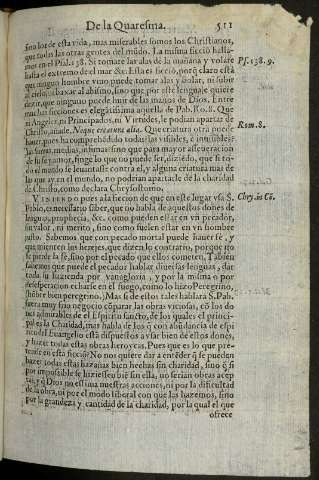 De la Quaresma. 511
sino los de esta vida, mas miserables somos los Christianos,
que todas las otras gentes del mũdo. La misma ficciõ halla-
mos en el Psal. 138. Si tomare las alas de la mañana y volare
hasta el extremo del mar &c. Esta es ficciõ, porq̃ claro está
que ningun hombre vuo puede tomar alas y volar, ni subir
al cielo, ni abaxar al abismo, sino que por este lenguaje quiere
dezir, que ninguno puede huir de las manos de Dios. Entre
muchas ficciones es elegãtissima aquella de S. Pab. Ro. 8. Que
ni Angeles, ni Principados, ni Virtudes, le podian apartar de
Christo, añade, Neque creatura alia. Que criatura otra puede
hauer, pues ha comprehẽdido todas las visibles, é inuisibles,
sumas, medias, infimas? sino que para mayor asseueracion
de su fe y amor, finge lo que no puede ser, diziẽdo, que si to-
do el mundo se leuantasse contra el, y alguna criatura mas de
las que ay en el mundo, no podrian apartarle de la charidad
de Christo, como declara Chrysostomo.
VINIENDO pues a la ficcion de que en este lugar vsa S.
Pablo, es necessario suber, que no habla de aquellos dones de
lengua, prophecia, &c. como pueden estar en vn pecador,
sin valor, ni merito, sino como suelen estar en vn hombre
justo. Sabemos que con pecado mortal puede hauer fé, y
que mienten los herejes, que dizen lo contrario, porque no
se pierde la fe, sino por el pecado que ellos cometen. Tãbien
sabemos que puede el pecador hablar diuersas lenguas, dar
toda su hazienda por vanagloria, y por la misma o por
desesperacion echarse en el fuego, como lo hizo Peregrino,
Mas si de estos tales hablara S. Pab.
fuera muy frio negocio cõparar las obras viciosas, cõ los do
nes admirables de el Espiritu sancto, de los quales el princi-
pal es la Charidad, mas habla de los q̃ con abundancia de espi
ritu del Euangelio està dispuestos a vsar bien de estos dones,
y hazer todas estas obras heroycas. Pues que es lo que pre-
tende en esta ficciõ? No nos quiere dar a entẽder q̃ se pueden
hazer todas estas hazañas bien hechas sin charidad, sino q̃ si
por impossible se hiziessen biẽ sin ella, no serian obras acep
tas, y q̃ Dios no estima nuestras acciones, ni por la dificultad
de la obra, ni por el modo liberal con que las hazemos, sino
por la grandeza y cantidad de la charidad, por la qual el que
ofrece
Ps. 138. 9.
Rom. 8.
Chry. in Cõ.